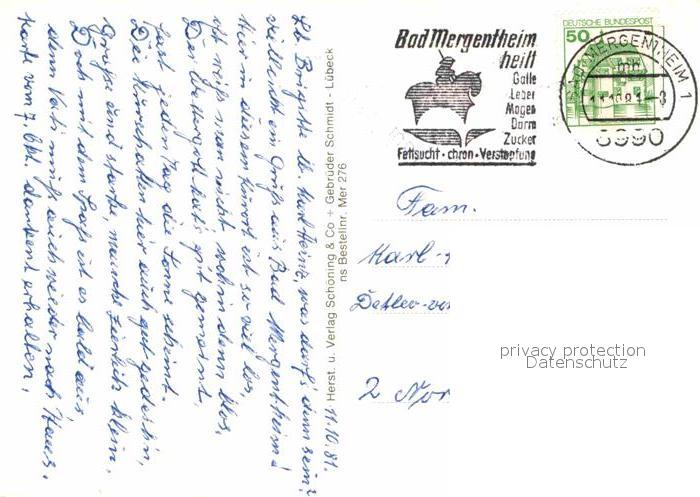 11.10.81.
Lb Brigitte u. Karl Heinz, was darf's denn sein?
Vielleicht ein Gruß aus Bad Mergentheim!
Hier in diesem Kurort ist so viel los,
ich weiß man nicht wohin denn blos.
Der Wettergott hat's gut gemeint.
Fast jeden Tag die Sonne scheint.
Bei Kurschatten hier auch gut gedeih'n,
Große und starke, manche zierlich klein,
Doch mit dem Spaß ist es bald aus,
denn Vati muß auch wieder nach Haus.
Karte vom 7. Okt. dankend erhalten,
Herst. u. Verlag Schöning & Co + Gebrüder Schmidt - Lübeck
ns Bestellnr. Mer 276
Bad Mergentheim
heilt
Galle
Leber
Magen
Darm
Zucker
Fettsucht · chron · Verstopfung
DEUTSCHE BUNDESPOST
50
BAD MERGENTHEIM 1
mh
6990
Fam.
Karl-
Detlev-vo
2 Nor
privacy protection
Datenschutz